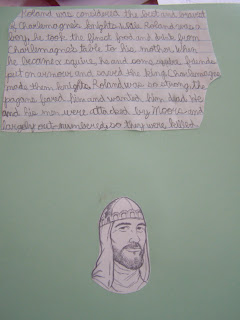 Roland was considered the best and bravest
of Charlemagne's knights. While Roland was a
boy, he took the finest food and drink from
Charlemagne's table to his mother. When
he became a squire, he and some squire friends
put on armour and saved the king. Charlemagne
made them knights. Roland was so strong, the
pagans feared him and wanted him dead. He
and his men were attacked by Moors and
largely outnumbered, so they were killed.